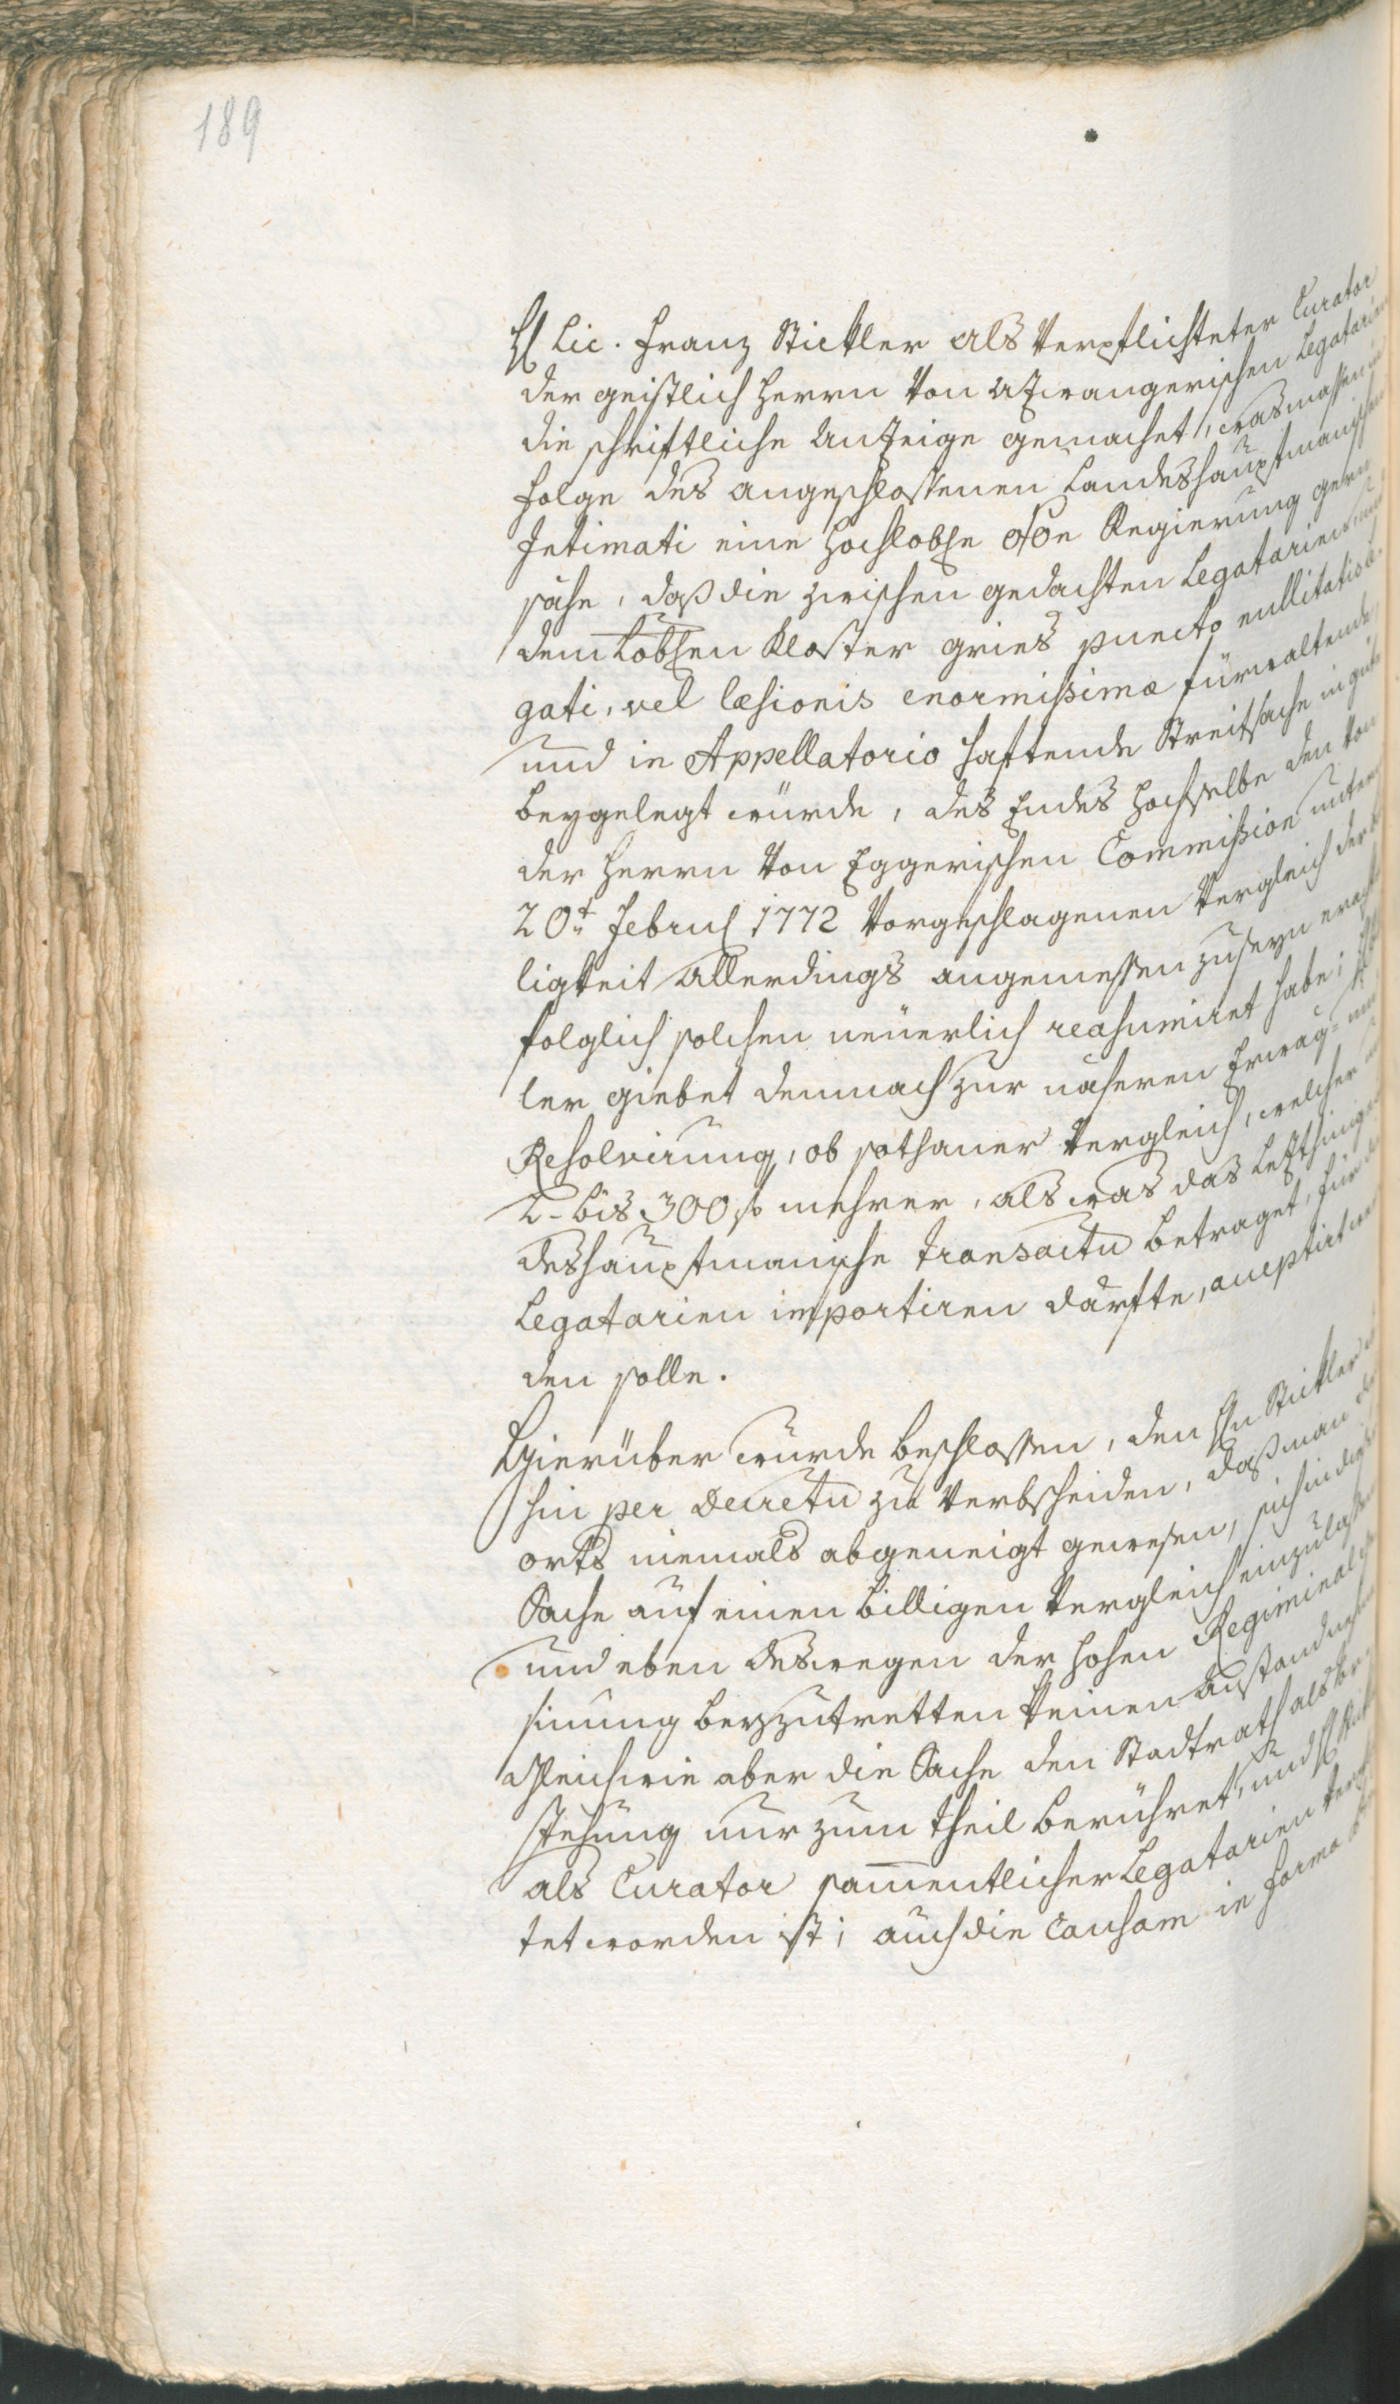 189
H Lic. Franz Stickler als verpflichteter Curator
der geistlich Herrn von Azwangerischen Legatarien
die schriftliche Anzeige gemachet, wasmassen in
folge des angeschlossenen Landeshauptmanisch
Intimati eine hochlobe oöe Regierung gern
sähe, daß die zwischen gedachten Legatarien und
dem Lobhen Kloster Gries puncto nullitatis le-
gati, vel læsionis enormissimæ fürwaltende
und in Appellatorio haftende Streitsache in güte
beygelegt würde, des Endes hochselbe den von
der Herrn von Eggerischen Commission unterm
20t Febru 1772 vorgeschlagenen Vergleich der bil
ligkeit allerdings angemessen zuseyn eracht
folglich solchen neüerlich reasumiret habe;
ler giebet demnach zur näheren Erwäg- und
Resolvirung, ob sothaner Vergleich, welcher
2- bis 300 f mehrer, als was das letsthinige
deshauptmanische transactu betraget, für die
Legatarien importiren därfte, acceptirt wer
den solle.
Hierüber wurde beschlossen, den Hn Stickler
hin per Decretu zu verbscheiden, daß man
orts niemals abgeneigt gewesen, sich in dieser
Sache auf einen billigen Vergleich einzulassen
und eben deswegen der hohen Regiminal
sinung beyzutretten keinen Anstand nehme
Gleichwie aber die Sache den Stadtrath als
stehung nur zum theil berühret, und H Stick
als Curator sammentlicher Legatarien verpf
tet worden ist; auch die Causam in forma